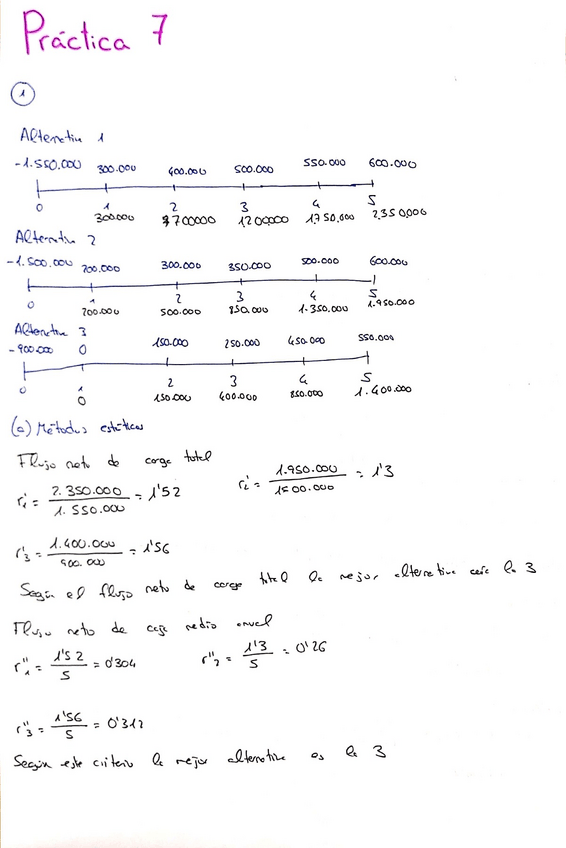 Práctica 7
1
Alternativa 1
-1.550.000 300.000 400.000 500.000 550.000 600.000
0 1 2 3 4 5
300.000 700000 1200.000 1.750.000 2.350.000
Alternativa 2
-1.500.000 200.000 300.000 350.000 500.000 600.000
0 1 2 3 4 5
200.000 500.000 850.000 1.350.000 1.950.000
Alternativa 3
-900.000 0 150.000 250.000 450.000 550.000
0 1 2 3 4 5
0 150.000 400.000 850.000 1.400.000
(a) Métodos estáticos
Flujo neto de carga total
r'1 = 2.350.000 / 1.550.000 = 1'52 r'2 = 1.950.000 / 1500.000 = 1'3
r'3 = 1.400.000 / 900.000 = 1'56
Según el flujo neto de carga total la mejor alternativa será la 3
Flujo neto de caja medio anual
r''1 = 1'52 / 5 = 0'304 r''2 = 1'3 / 5 = 0'26
r''3 = 1'56 / 5 = 0'312
Según este criterio la mejor alternativa es la 3